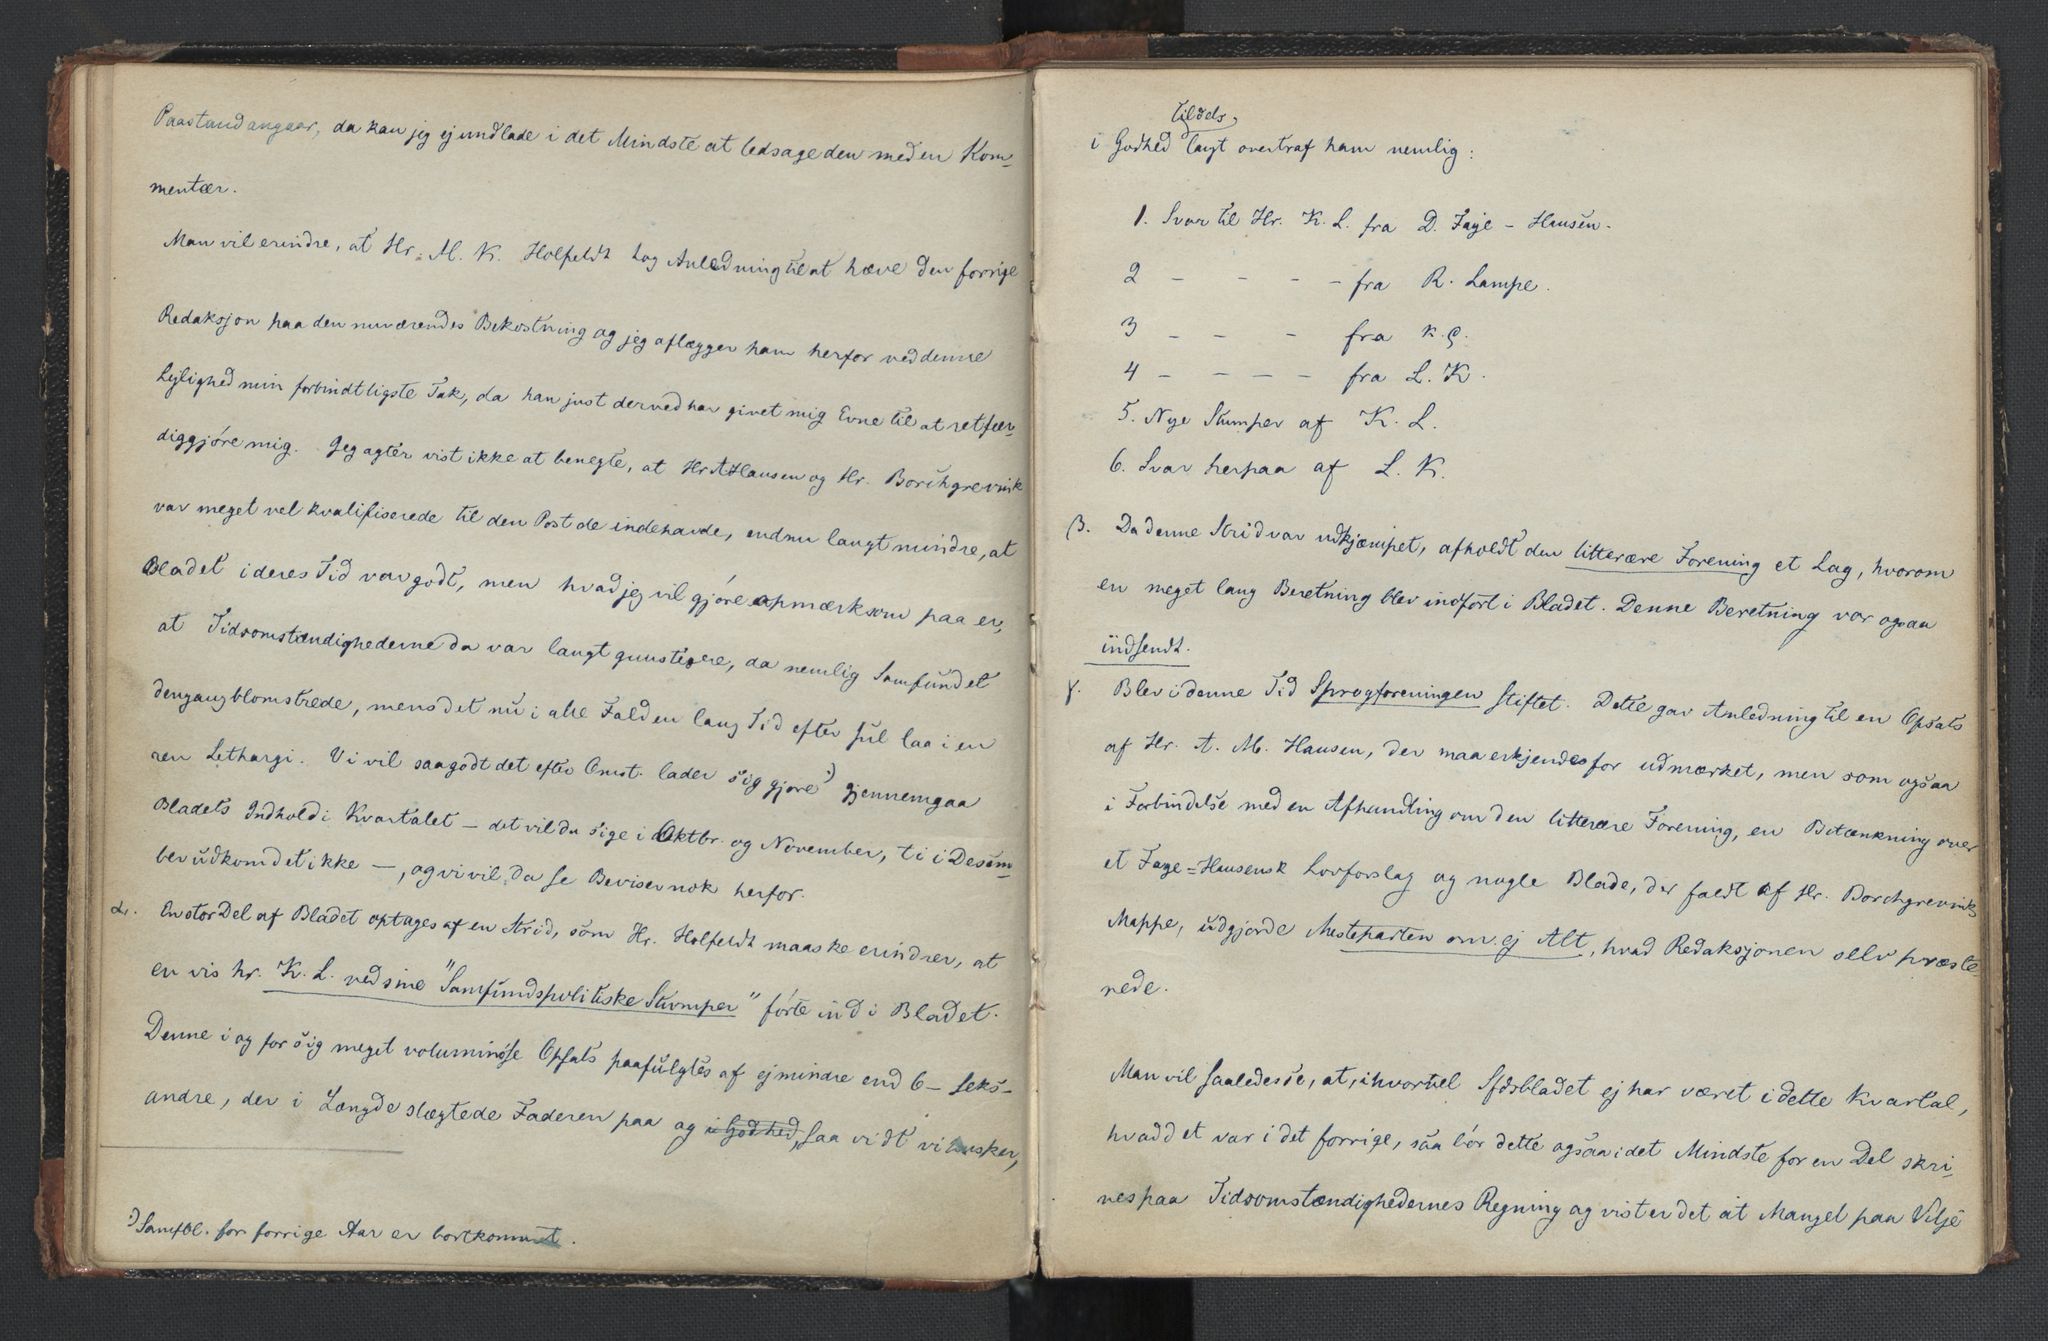 Paastand angaar, da kan jeg ej undlade i det Mindste at ledsage den med en Kom-
mentær.
Man vil erindre, at Hr. M. K. Holfeldt tog Anledning til at hæve den forrige
Redaksjon paa den nuværendes Bekostning og jeg aflægger ham herfor ved denne
Lejlighed min forbindtligste Tak, da han just derved har givet mig Evne til at retfær-
diggjöre mig. Jeg agter vist ikke at benegte, at Hr. A Hansen og Hr. Borchgrevink
var meget vel kvalifiserede til den Post de indehavde, endnu langt mindre, at
Bladet i deres Tid var godt, men hvad jeg vil gjöre opmærksom paa er,
at Tidsomstændighederne da var langt gunstigere, da nemlig Samfundet
dengang blomstrede, mens det nu i alle Fald en lang Tid efter Jul laa i en
ren Lethargi. Vi vil saagodt det efter Omst. lader sig gjöre :) gjennemgaa
Bladets Indhold i Kvartalet – det vil da sige i Oktbr. og November, ti i Desem-
ber udkom det ikke –, og vi vil da se Beviser nok herfor.
α. En stor Del af Bladet optages af en Strid, som Hr. Holfeldt maaske erindrer, at
en vis hr. K. L. ved sine "Samfundspolitiske Stumper" förte ind i Bladet.
Denne i og for sig meget voluminöse Opsats paafulgtes af ej mindre end 6 – seks –
andre, der i Længde slægtede Faderen paa og i Godhed, saa vidt vi husker,
:) Samfbl. for forrige Aar er bortkommet.
tildels,
i Godhed langt overtraf ham nemlig:
1. Svar til Hr. K. L. fra D. Faye – Hansen.
2 – – – – fra R. Lampe.
3 – – – fra K. C.
4 – – – – fra L. K.
5. Nye Stumper af K. L.
6. Svar herpaa af L. K.
β. Da denne Strid var udkjæmpet, afholdt den litterære Forening et Lag, hvorom
en meget lang Beretning blev indfört i Bladet. Denne Beretning var ogsaa
indsendt.
γ. Blev i denne Tid Sprogforeningen stiftet. Dette gav Anledning til en Opsats
af Hr. A. M. Hansen, der maa erkjendes for udmærket, men som ogsaa
i Forbindelse med en Afhandling om den litterære Forening, en Betænkning over
et Faye=Hansensk Lovforslag og nogle Blade, der faldt af Hr. Borchgrevinks
Mappe, udgjorde Mesteparten om ej Alt, hvad Redaksjonen selv præste-
rede.
Man vil saaledes se, at, ihvorvel Sfdsbladet ej har været i dette Kvartal,
hvad det var i det forrige, saa bör dette ogsaa i det Mindste for en Del skri-
ves paa Tidsomstændighedernes Regning og vist er det at Mangel paa Vilje